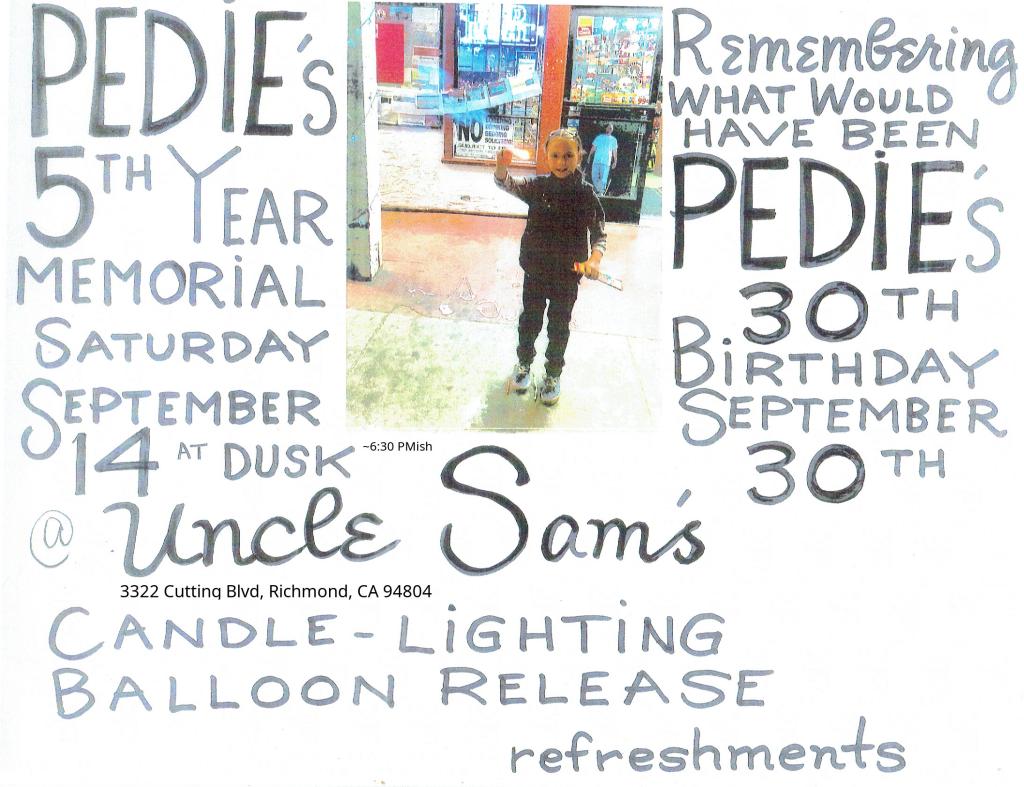 PEDIE's
5TH YEAR
MEMORIAL
SATURDAY
SEPTEMBER
14 AT DUSK ~6:30 PMish
@ Uncle Sam's
3322 Cutting Blvd, Richmond, CA 94804
CANDLE-LIGHTING
BALLOON RELEASE
refreshments
Remembering
WHAT WOULD
HAVE BEEN
PEDIE's
30TH
BIRTHDAY
SEPTEMBER
30TH
NO